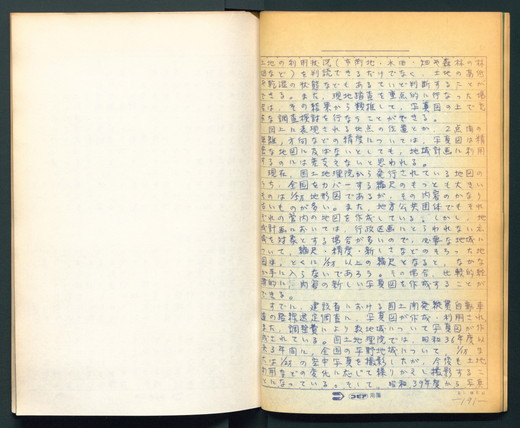 土地の利用状況(市街地・水田・畑や森林の林
など)を判読できるだけでなく、土地の高低
や乾湿の状態などもあるていど判断することが
できる。また、現地踏査を重点的に行なった場
合は、その結果から類推して、写真図の上で
な調査検討を行なうことができる。
図上に表現される地点の位置とか、2点間の
距離,方向などの精度については、写真図は精
な地図に及ばないとしても、地域計画に利用
するのには差支えないと思われる。
現在、国土地理院から発行されている地図の
うち、全国をカバーする縮尺のもっとも大きい
ものは 地形図であるが、その内容のかなり
いものが多い。また、地方公共団体でもそれ
ぞれの管内の地図を作成している。しかし、地
域計画においては、行政区画にとらわれない
域を対象とする場合が多いので、必要な地域に
ついて、縮尺・精度・新しさなどのそろった地
図は、とくに 以上の縮尺となると、なかなか
手に入らないであろう。その場合、比較的短
期的に、内容の新しい写真図を作成することが
できる。
すでに、建設省における国土開発縦貫自動車
道の路線選定調査に、写真図が作成・利用され
また、調整費により 地域について写真図が作
成されている。国土地理院では、昭和36年度以
来3年間に、全国の平野地域について、
の空中写真を撮影したが、今後も土地
利用などの変化に応じて繰りかえし撮影するこ
とになっている。そして、昭和39年度から写真
コピア 出版
—191—